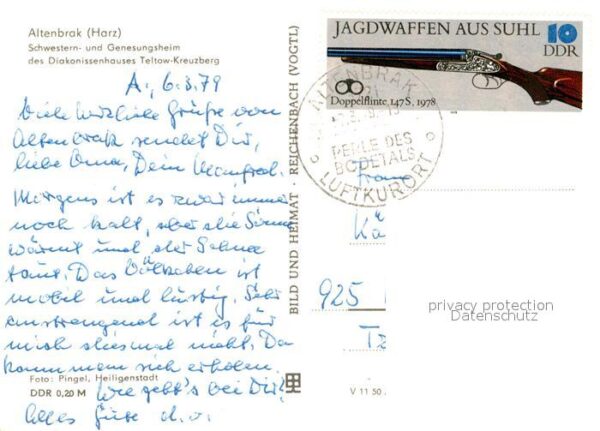 Altenbrak (Harz)
Schwestern- und Genesungsheim
des Diakonissenhauses Teltow-Kreuzberg
A., 6.3.79
Viele herzliche Grüße von
Altenbrak sendet Dir,
liebe Oma, Dein Manfred.
Morgens ist es zwar immer
noch kalt, aber die Sonne
wärmt und der Schnee
taut. Das Völkchen ist
mobil und lustig. Sehr
anstrengend ist es für
mich diesmal nicht. Da
kann man sich erholen.
Wie geht's bei Dir?
Alles Gute d. o.
Foto: Pingel, Heiligenstadt
DDR 0,20 M
BILD UND HEIMAT · REICHENBACH (VOGTL)
V 11 50
JAGDWAFFEN AUS SUHL 10
DDR
Doppelflinte, 147 S, 1978
ALTENBRAK
PERLE DES
BODETALS
LUFTKURORT
Frau
Kä
925
privacy protection
Datenschutz